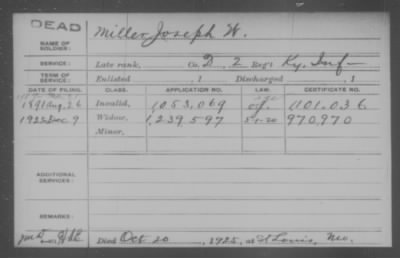 DEAD
Miller, Joseph W.
NAME OF SOLDIER:
SERVICE: Late rank, Co. D, 2 Reg't Ky. Inf-
TERM OF SERVICE: Enlisted , 1 Discharged , 1
DATE OF FILING. CLASS. APPLICATION NO. LAW. CERTIFICATE NO.
1891 Aug. 26 Invalid, 1053,069 1101,036
1925 Dec 9 Widow, 1,239,597 5-1-20 970,970
Minor,
ADDITIONAL SERVICES:
REMARKS:
Died Oct 20, 1925, at St Louis, Mo.